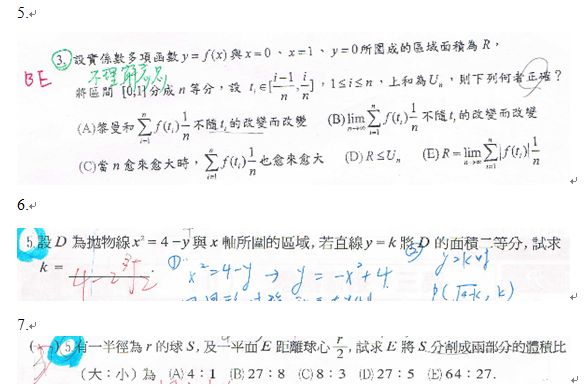 5.
③ 設實係數多項函數 y = f(x) 與 x = 0、x = 1、y = 0 所圍成的區域面積為 R，
BE 不理解意思
將區間 [0,1] 分成 n 等分，設 tᵢ∈[i−1/n, i/n]，1≤i≤n，上和為 Uₙ，則下列何者正確？
(A)黎曼和 ∑ᵢ₌₁ⁿ f(tᵢ)1/n 不隨 tᵢ 的改變而改變 (B) lim n→∞ ∑ᵢ₌₁ⁿ f(tᵢ)1/n 不隨 tᵢ 的改變而改變
(C)當 n 愈來愈大時，∑ᵢ₌₁ⁿ f(tᵢ)1/n 也愈來愈大 (D) R≤Uₙ (E) R = lim n→∞ ∑ᵢ₌₁ⁿ |f(tᵢ)|1/n
6.
5. 設 D 為拋物線 x² = 4 − y 與 x 軸所圍的區域，若直線 y = k 將 D 的面積二等分，試求
k = 4−2∛2 . ① x²=4−y → y = −x²+4 ②
P(√4−k, k)
7.
5. 有一半徑為 r 的球 S，及一平面 E 距離球心 r/2，試求 E 將 S 分割成兩部分的體積比
（大：小）為 (A) 4：1 (B) 27：8 (C) 8：3 (D) 27：5 (E) 64：27.